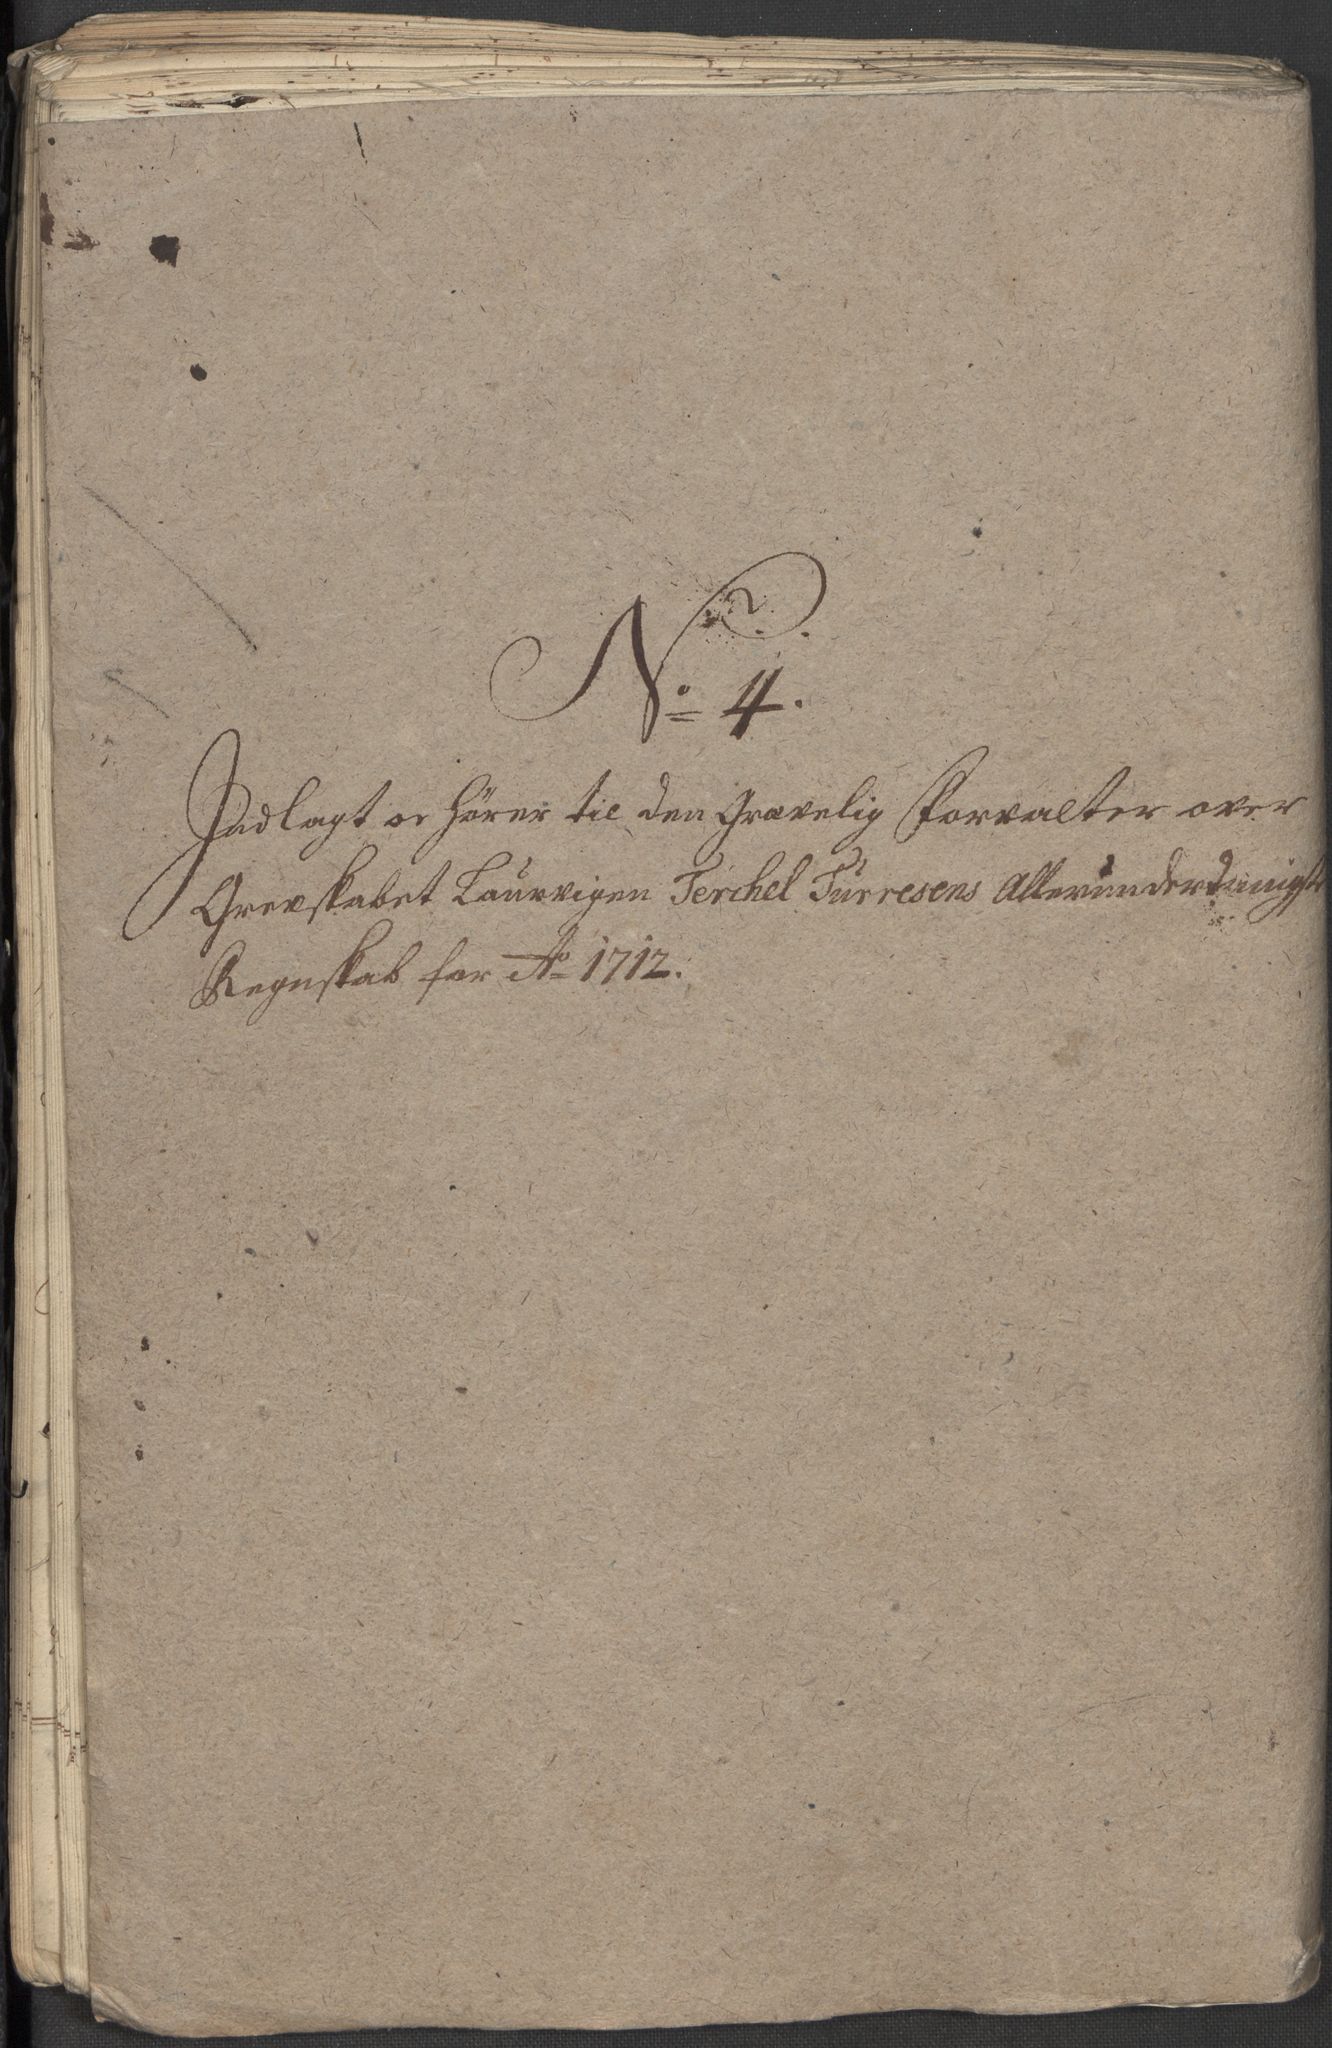 No 4.
Indlagt oc hörer til den Grævelig Forvalter over
Grevskabet Laurvigen Terchel Türresens Allerunderdanigste
Regnskab for Ao 1712.